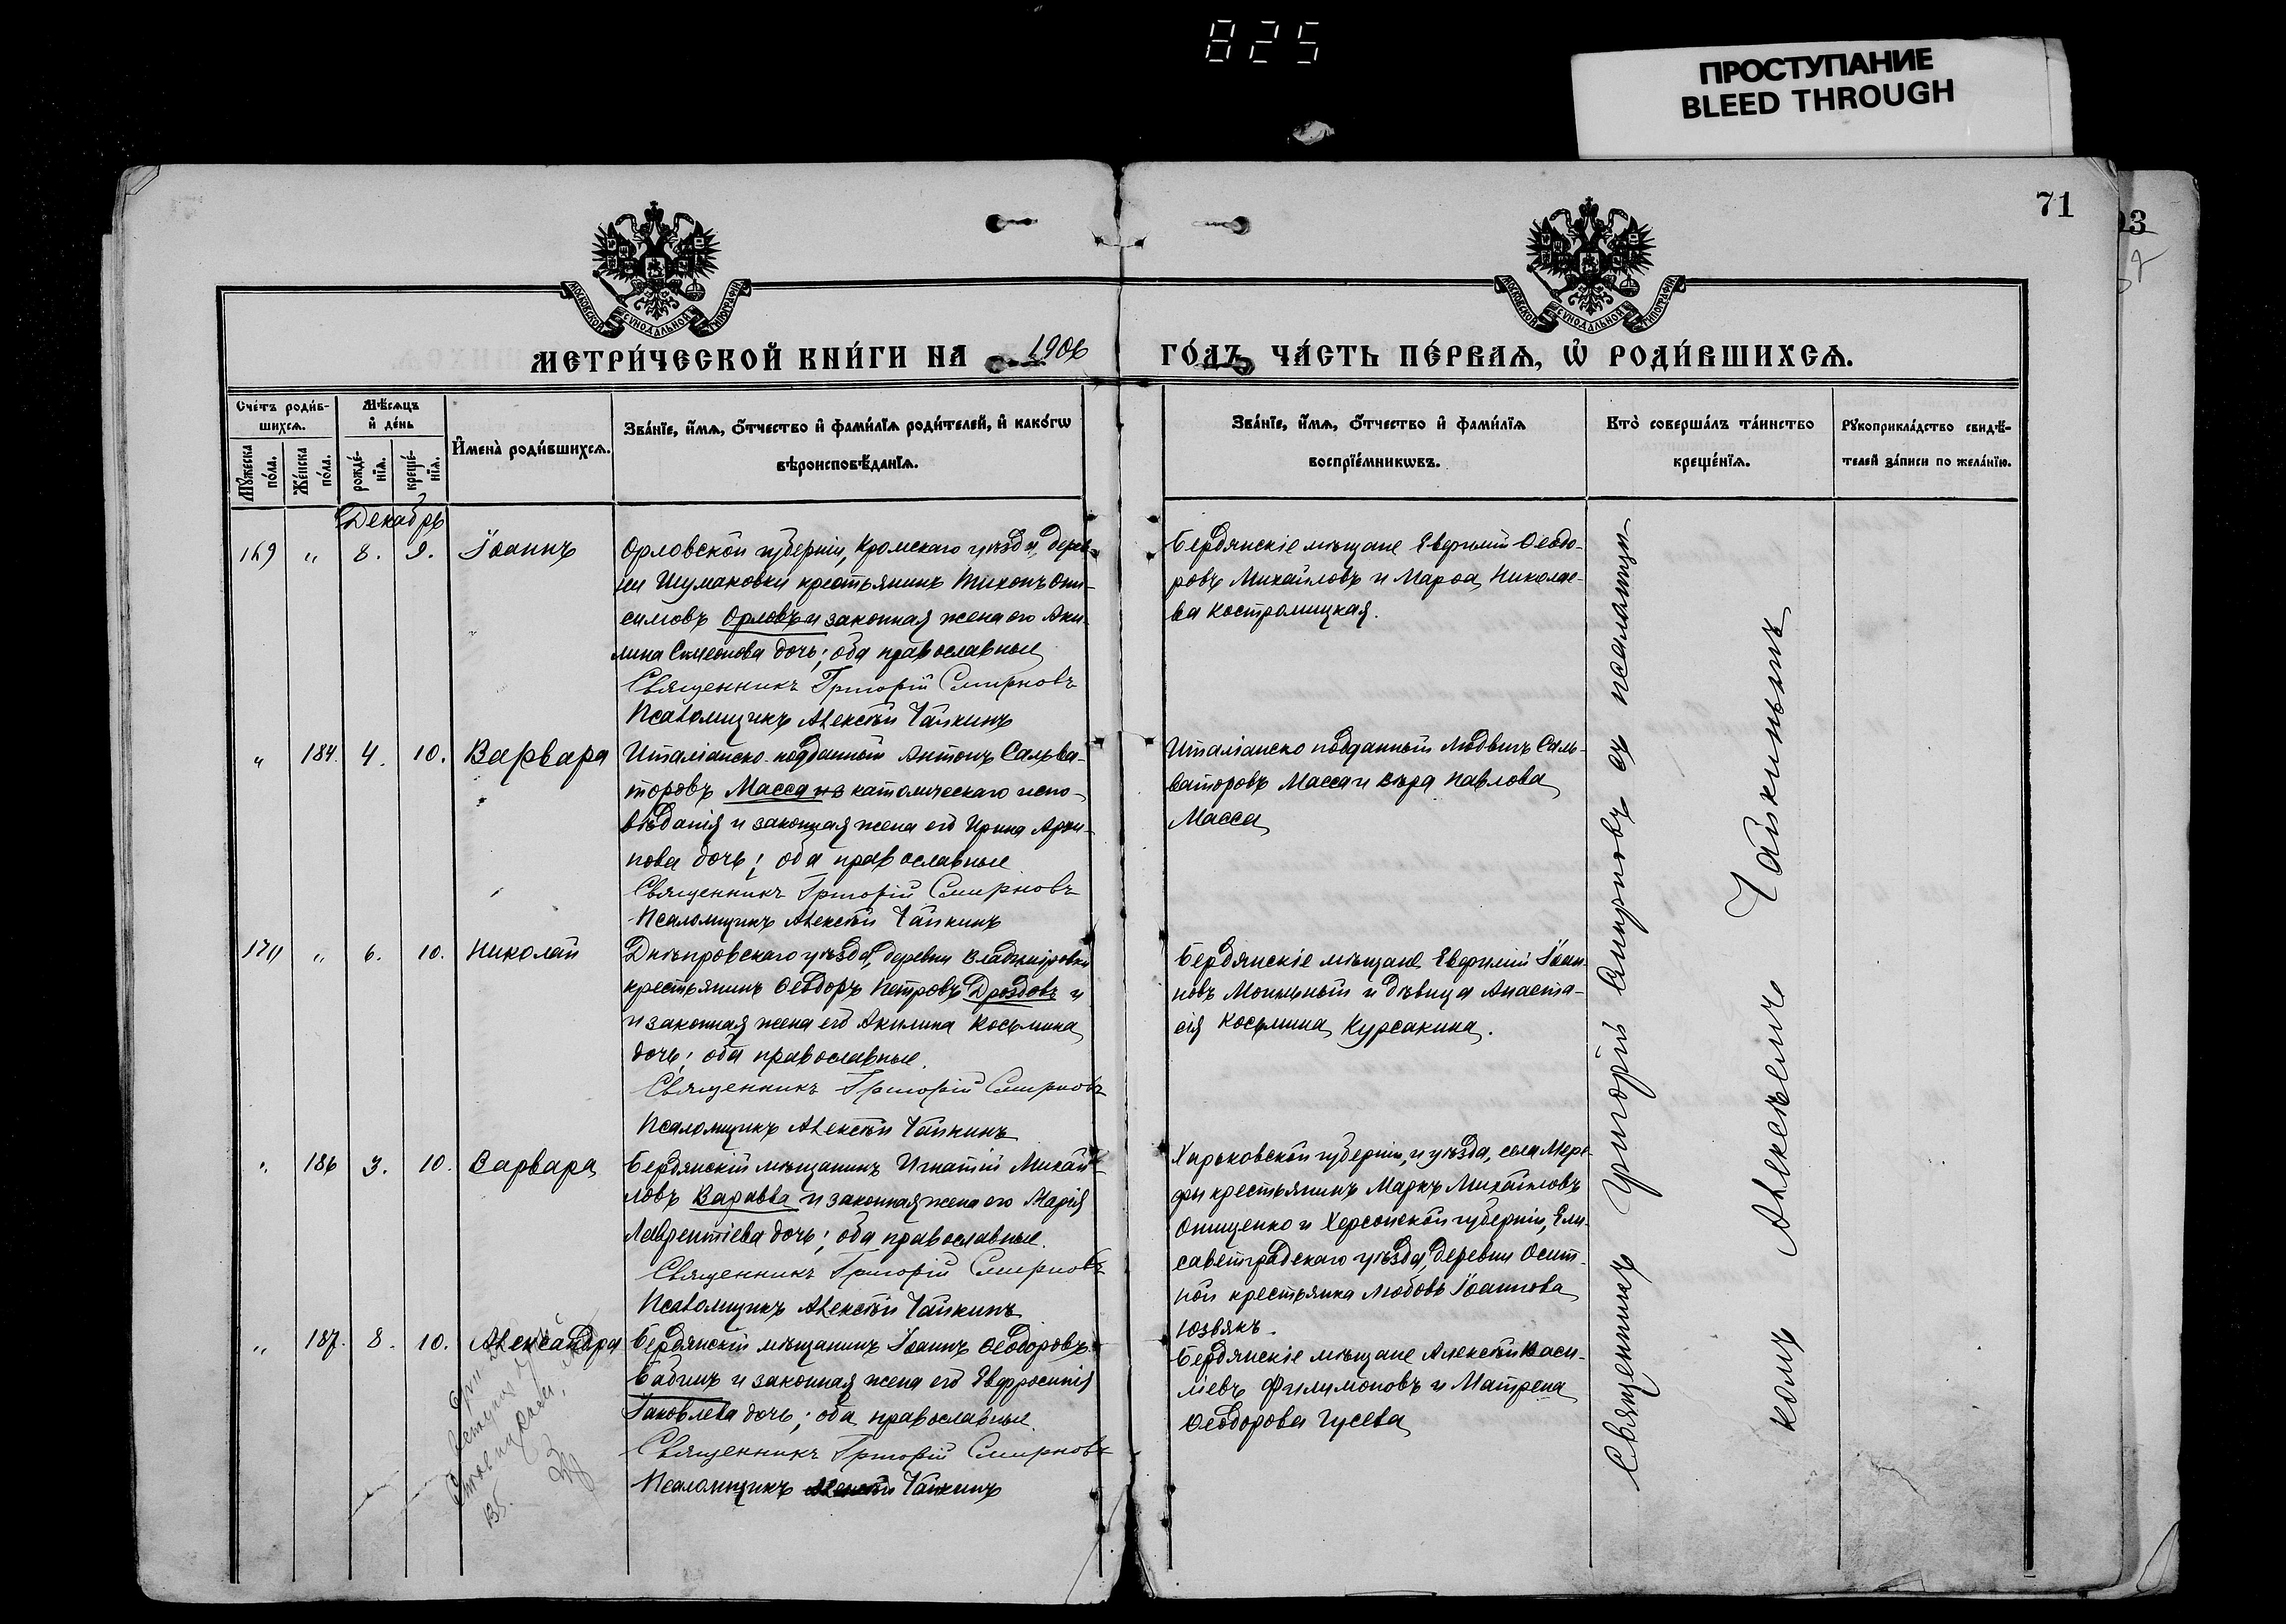 825
ПРОСТУПАНИЕ
BLEED THROUGH
71
МОСКОВСКОЙ СѴНОДАЛЬНОЙ ТИПОГРАФІИ
МОСКОВСКОЙ СѴНОДАЛЬНОЙ ТИПОГРАФІИ
МЕТРИ́ЧЕСКОЙ КНИ́ГИ НА 1906 ГО́ДЪ ЧА́СТЬ ПЕ́РВАѦ, Ѡ҆ РОДИ́ВШИХСѦ.
Сче́тъ роди́в-
шихсѧ.
Мꙋ́жеска по́ла.
Же́нска по́ла.
Мѣ́сѧцъ
и҆ де́нь
рожде́-
нїѧ.
креще́-
нїѧ.
И҆мена̀ роди́вшихсѧ.
Зва́нїе, и҆́мѧ, ѻ҆́тчество и҆ фами́лїѧ роди́телей, и҆ како́гѡ
вѣроисповѣ́данїѧ.
Зва́нїе, и҆́мѧ, ѻ҆́тчество и҆ фами́лїѧ
воспрїе́мникѡвъ.
Кто̀ соверша́лъ та́инство
креще́нїѧ.
Рꙋкоприкла́дство свидѣ́-
телей за́писи по жела́нїю.
Декабрь
169 " 8. 9. Іоаннъ
Орловской губерніи, Кромскаго уѣзда, дерев-
ни Шумаковки крестьянинъ Тихонъ Они-
симовъ Орловъ и законная жена его Аки-
лина Симеонова дочь; оба православные
Священникъ Григорій Смирновъ
Псаломщикъ Алексѣй Чайкинъ
Бердянскіе мѣщане Евфимій Ѳеодо-
ровъ Михайловъ и Марѳа Николае-
ва Костромицкая.
" 184. 4. 10. Варвара
Италіанско-подданный Антонъ Сальва-
торовъ Масса католическаго испо-
вѣданія и законная жена его Ирина Архи-
пова дочь; оба православные
Священникъ Григорій Смирновъ
Псаломщикъ Алексѣй Чайкинъ
Италіанско подданный Людвигъ Саль-
ваторовъ Масса и Вѣра Павлова
Масса
170 " 6. 10. Николай
Днѣпровскаго уѣзда, деревни Владиміровки
крестьянинъ Ѳеодоръ Петровъ Дроздовъ и
и законная жена его Акилина Косьмина
дочь; оба православные.
Священникъ Григорій Смирновъ
Псаломщикъ Алексѣй Чайкинъ
Бердянскіе мѣщане Евфимій Іоан-
новъ и дѣвица Анаста-
сія Косьмина Курсакина.
" 186 3. 10. Варвара
Бердянскій мѣщанинъ Игнатій Михай-
ловъ Варавва и законная жена его Марія
Лаврентіева дочь; оба православные.
Священникъ Григорій Смирновъ
Псаломщикъ Алексѣй Чайкинъ
Харьковской губерніи, и уѣзда, села Мере-
фы крестьянинъ Маркъ Михайловъ
Онищенко и Херсонской губерніи, Ели-
саветградскаго уѣзда, деревни Осит-
ной крестьянка Любовь Іоаннова
Юзвякъ.
" 187. 8. 10. Александра
Бердянскій мѣщанинъ Іоаннъ Ѳеодоровъ
Бабичъ и законная жена его Евфросинія
Іаковлева дочь; оба православные.
Священникъ Григорій Смирновъ
Псаломщикъ Алексѣй Чайкинъ
Бердянскіе мѣщане Алексѣй Васи-
ліевъ Филимоновъ и Матрена
Ѳеодорова Гусева
Священникъ Григорій Смирновъ съ псаломщи-
комъ Алексѣемъ Чайкинымъ